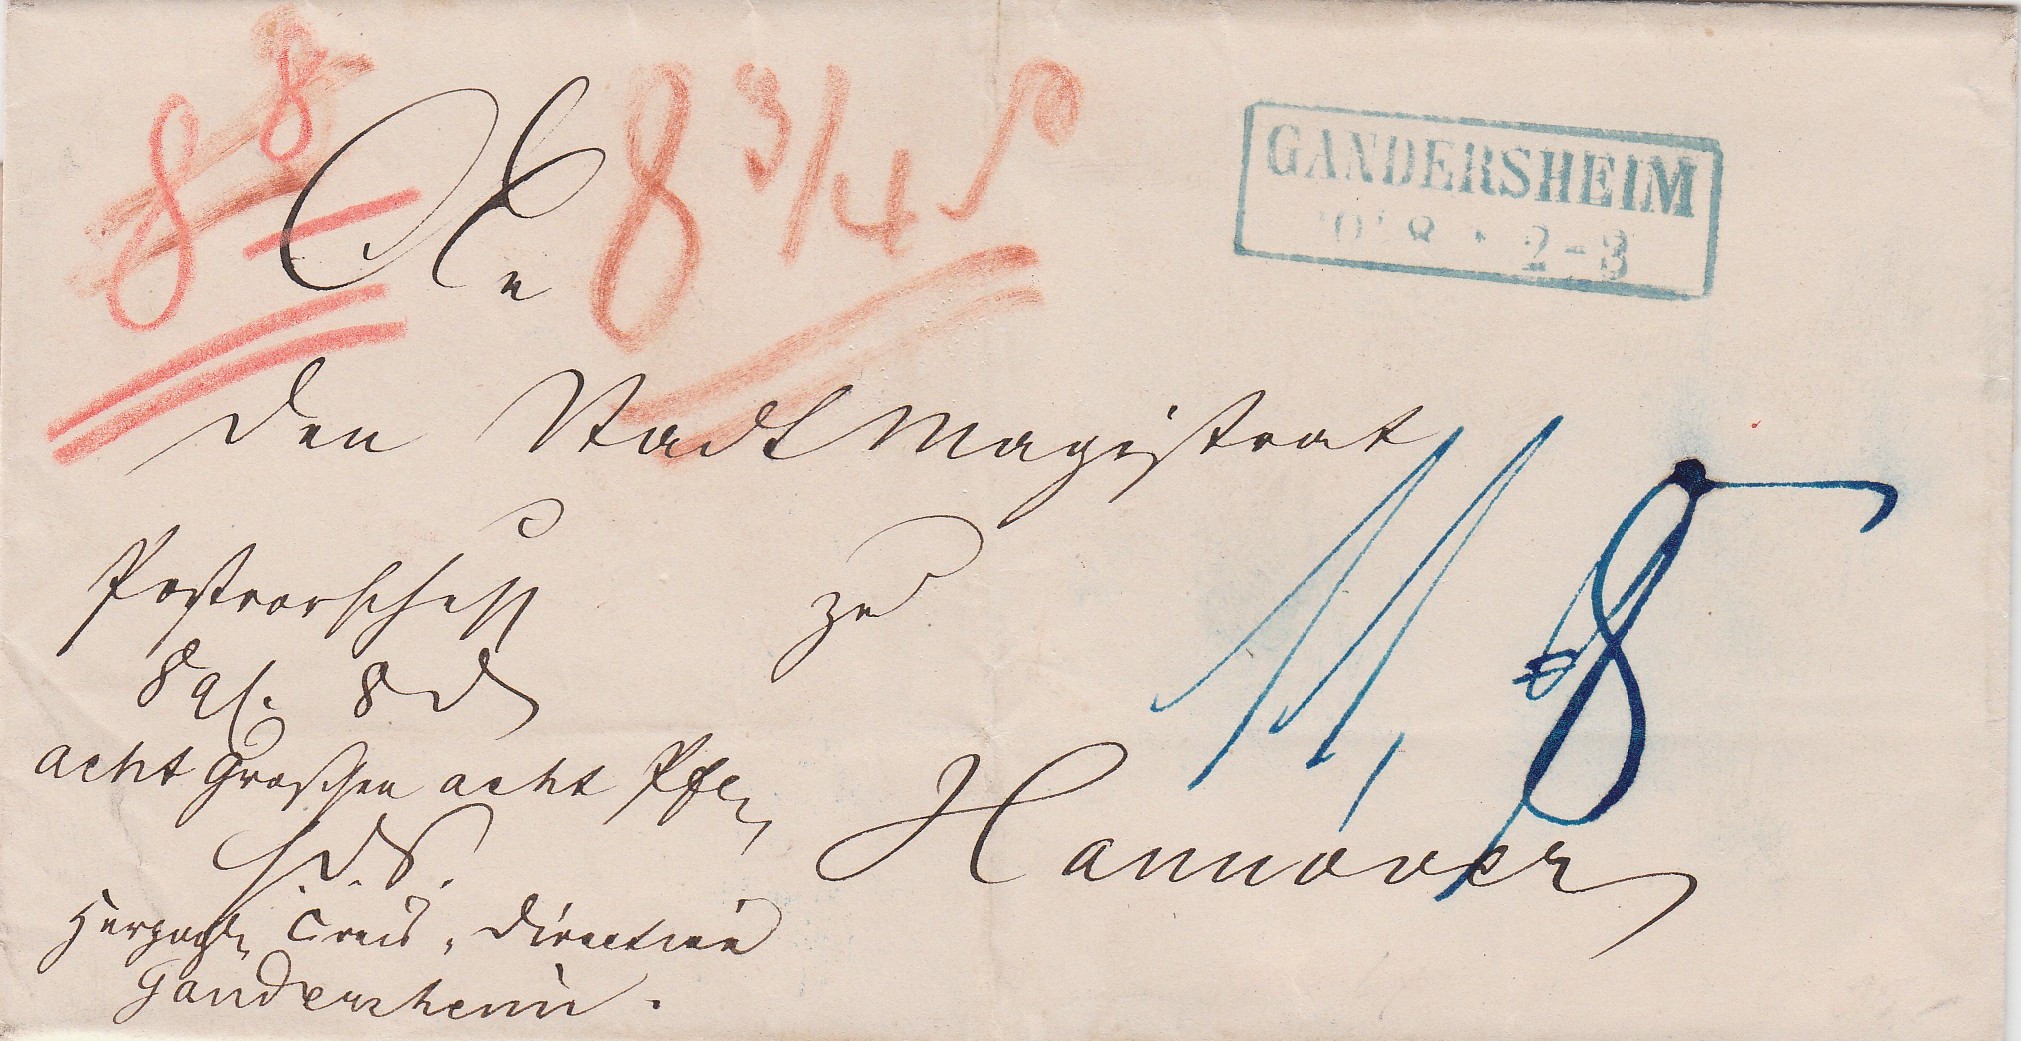 8 8
8 3/4
GANDERSHEIM
8 * 2-3
An
den StadtMagistrat
zu
Hannover
11, 8
Postvorschuß
8 gf. 8 d
acht Groschen acht Pfe
H. D. S.
Herzogl. Creis-Direction
Gandersheim.